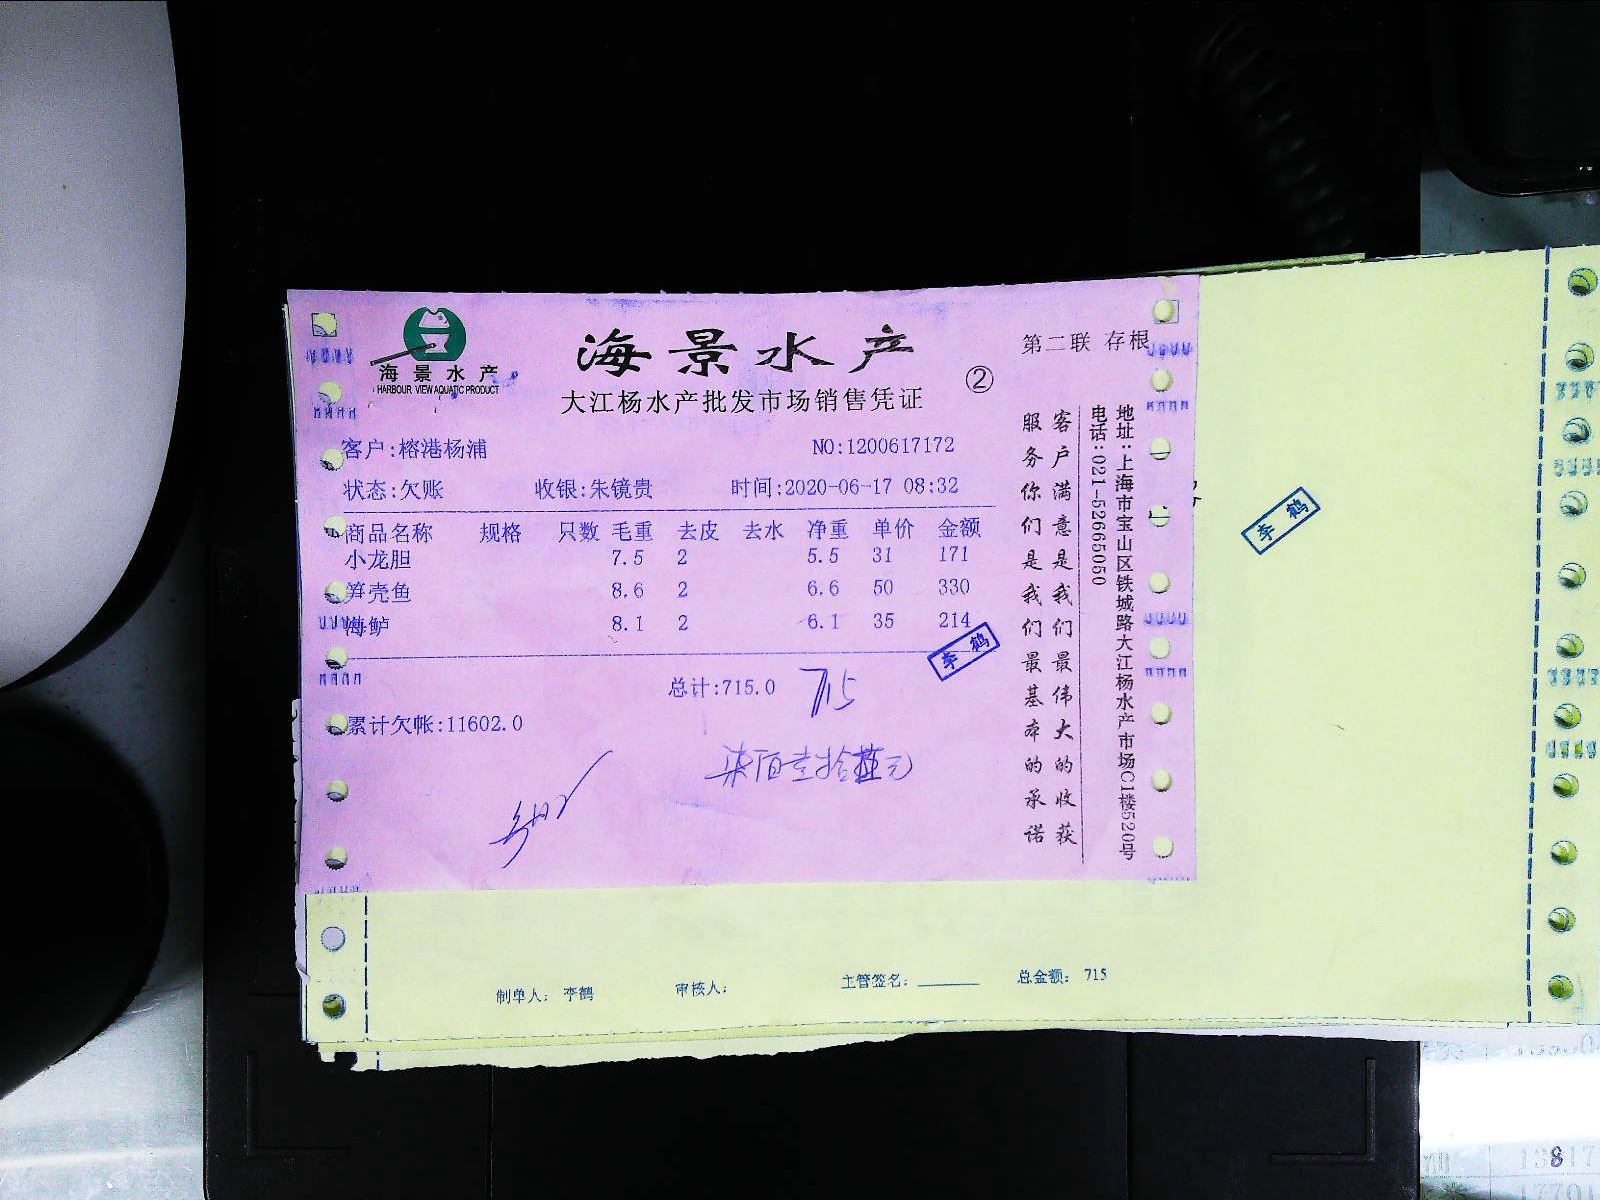 海景水产
HARBOUR VIEW AQUATIC PRODUCT
海景水产
大江杨水产批发市场销售凭证
②
第二联 存根
客户:榕港杨浦 NO:1200617172
状态:欠账 收银:朱镜贵 时间:2020-06-17 08:32
商品名称 规格 只数 毛重 去皮 去水 净重 单价 金额
小龙胆 7.5 2 5.5 31 171
笋壳鱼 8.6 2 6.6 50 330
海鲈 8.1 2 6.1 35 214
李鹤
总计:715.0 715
累计欠帐:11602.0
柒佰壹拾伍元
客户满意是我们最伟大的收获
服务你们是我们最基本的承诺
地址:上海市宝山区铁城路大江杨水产市场C1楼520号
电话:021-52665050
李鹤
制单人: 李鹤 审核人: 主管签名: 总金额: 715